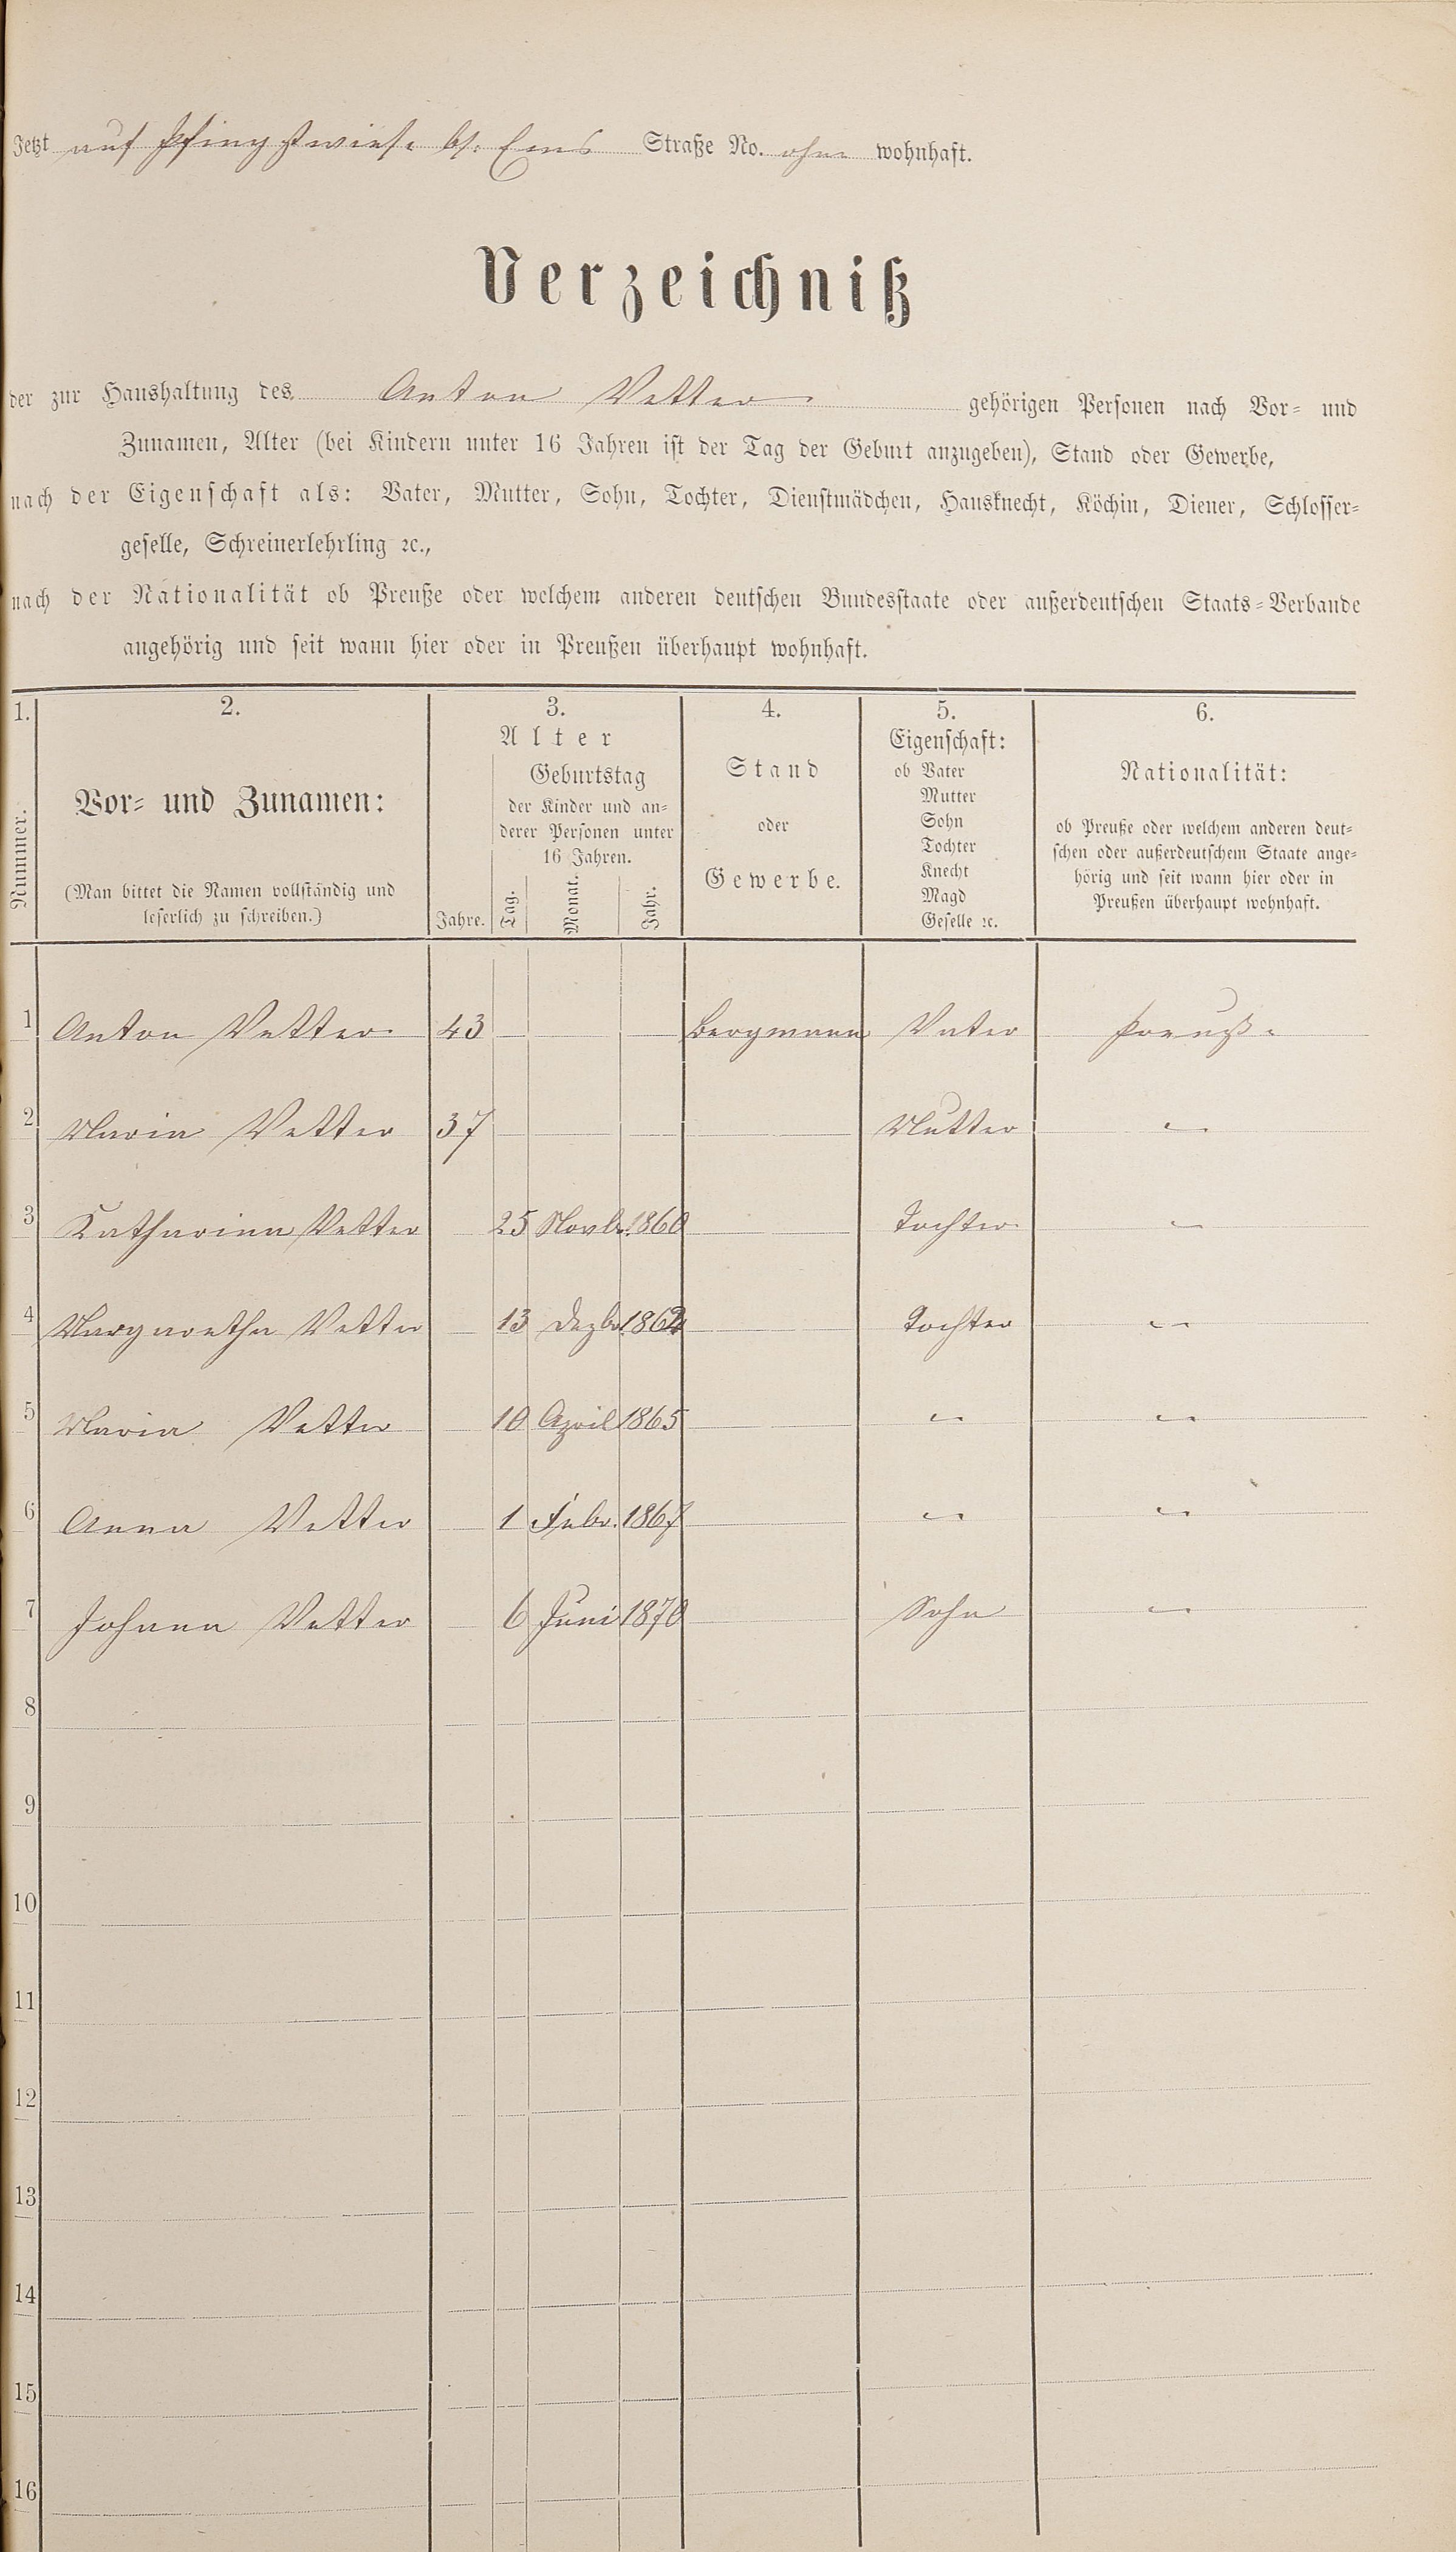 Jetzt auf Pfingstwiese bs. Ems Straße No. ohne wohnhaft.
Verzeichniß
der zur Haushaltung des Anton Vetter gehörigen Personen nach Vor= und
Zunamen, Alter (bei Kindern unter 16 Jahren ist der Tag der Geburt anzugeben), Stand oder Gewerbe,
nach der Eigenschaft als: Vater, Mutter, Sohn, Tochter, Dienstmädchen, Hausknecht, Köchin, Diener, Schlosser=
geselle, Schreinerlehrling ꝛc.,
nach der Nationalität ob Preuße oder welchem anderen deutschen Bundesstaate oder außerdeutschen Staats=Verbande
angehörig und seit wann hier oder in Preußen überhaupt wohnhaft.
1.
Nummer.
2.
Vor= und Zunamen:
(Man bittet die Namen vollständig und
leserlich zu schreiben.)
3.
Alter
Jahre.
Geburtstag
der Kinder und an=
derer Personen unter
16 Jahren.
Tag.
Monat.
Jahr.
4.
Stand
oder
Gewerbe.
5.
Eigenschaft:
ob Vater
Mutter
Sohn
Tochter
Knecht
Magd
Geselle ꝛc.
6.
Nationalität:
ob Preuße oder welchem anderen deut=
schen oder außerdeutschem Staate ange=
hörig und seit wann hier oder in
Preußen überhaupt wohnhaft.
1 Anton Vetter 43 Bergmann Vater Preuße
2 Maria Vetter 37 Mutter "
3 Katharina Vetter 25 Novbr. 1860 Tochter "
4 Margaretha Vetter 13 Dezbr. 1862 Tochter "
5 Maria Vetter 10 April 1865 " "
6 Anna Vetter 1 Febr. 1867 " "
7 Johann Vetter 6 Juni 1870 Sohn "
8
9
10
11
12
13
14
15
16